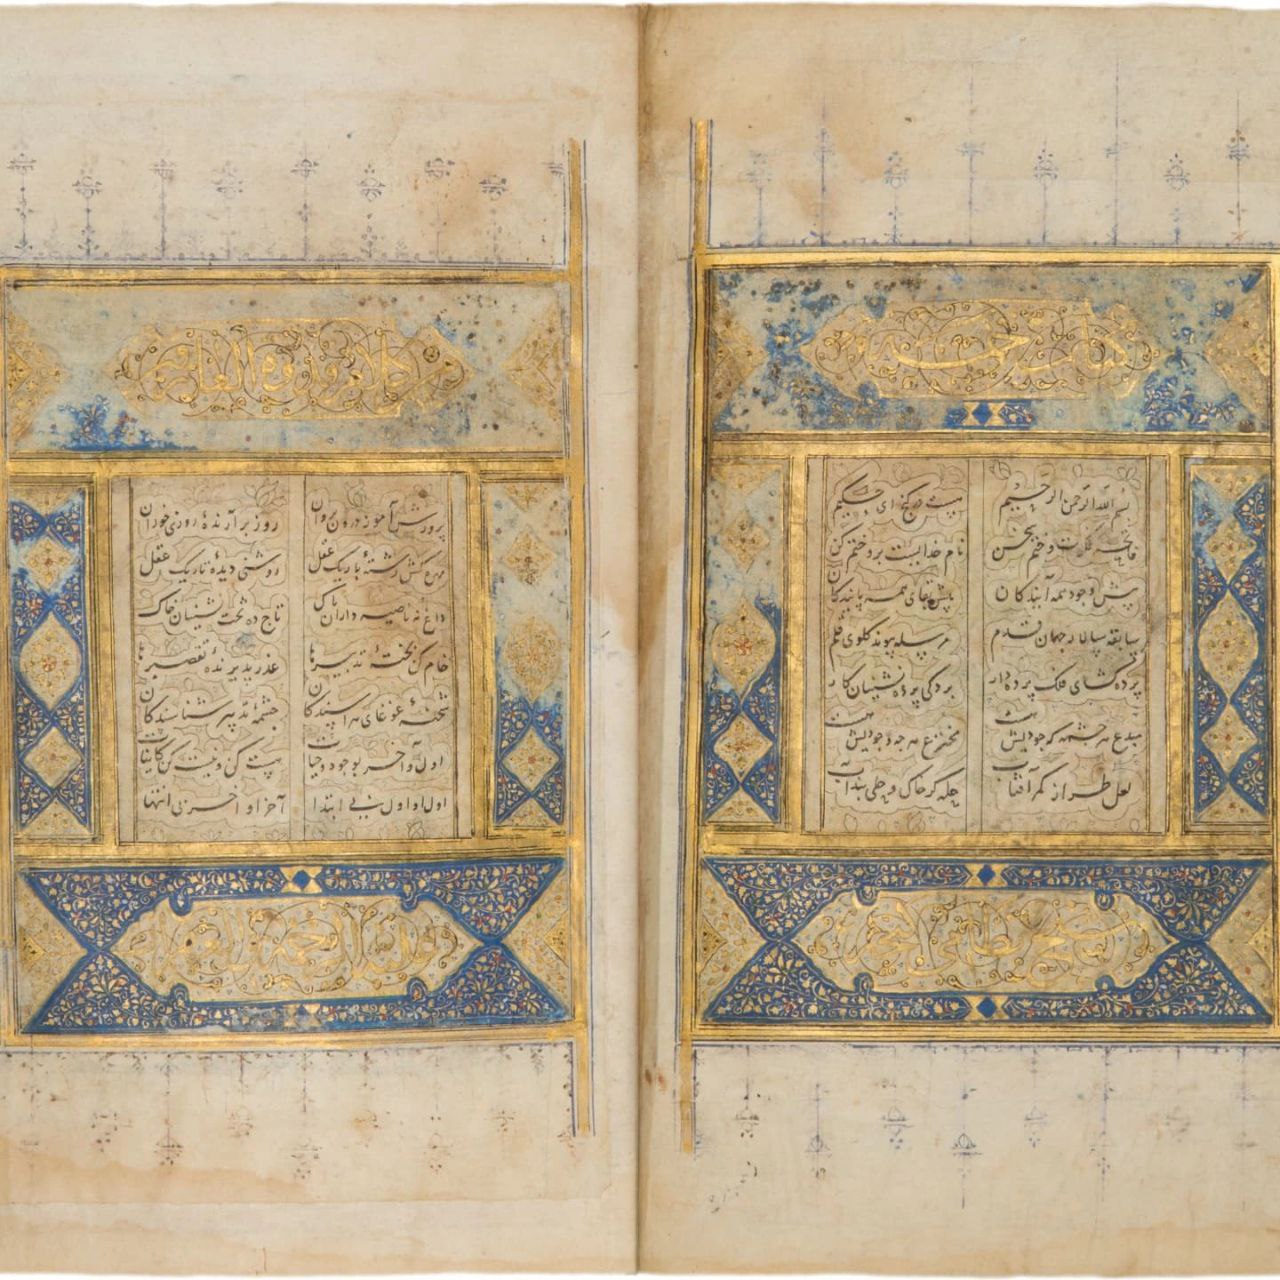 بسم الله الرحمن الرحیم هست گنج حکیم
فاتحه فکرت و ختم سخن نام خدایست برو ختم کن
پیش وجود همه آیندگان بیش بقای همه پایندگان
سابقه سالار جهان قدم مرسله پیوند گلوی قلم
پرده گشای فلک پرده دار پردگی پرده نشینان کار
مبدع هر چشمه که جودیش هست مخترع هر چه وجودیش هست
لعل طراز کمر آفتاب حله گر خاک و حلی بند آب
پرورش آموز درون پروران روز برآرندهٔ روزی خوران
مهره کش رشتهٔ باریک عقل روشنی دیدهٔ تاریک عقل
داغ نه ناصیه داران پاک تاج ده تخت نشینان خاک
خام کن پختهٔ تدبیرها عذر پذیرندهٔ تقصیرها
شحنهٔ غوغای هراسندگان چشمهٔ تدبیر شناسندگان
اول و آخر بوجود و حیات هست کن و نیست کن کاینات
اول او اول بی ابتدا آخر او آخر بی انتها